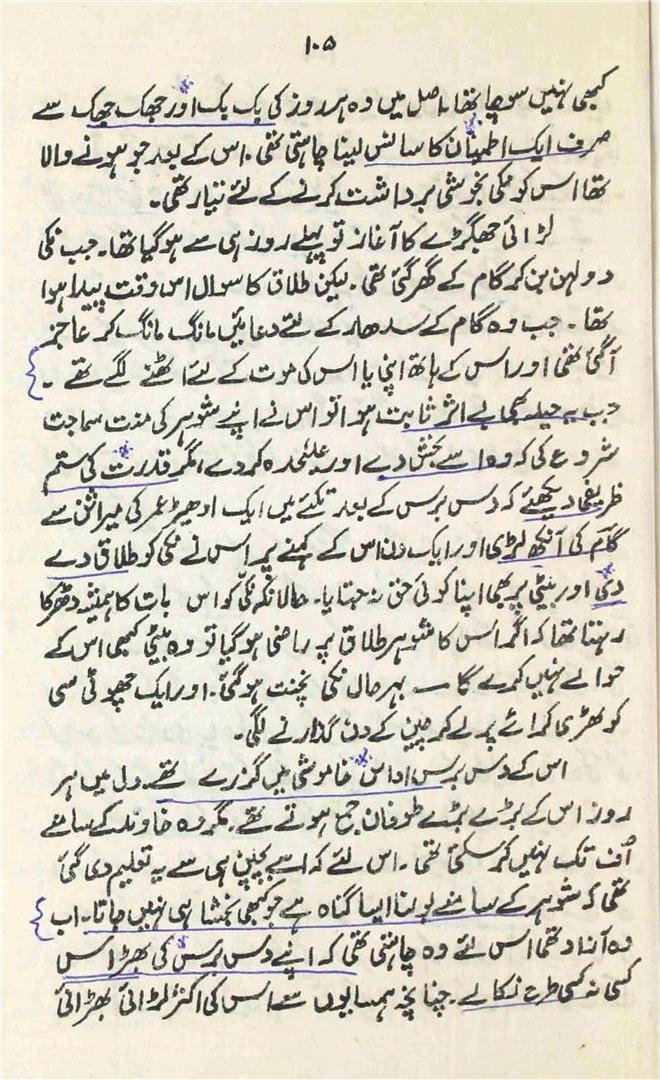 ۱۰۵
کبھی نہیں سوچا تھا۔ اصل میں وہ ہر روز کی بک بک اور جھک جھک سے
صرف ایک اطمینان کا سانس لینا چاہتی تھی۔ اس کے بعد جو ہونے والا
تھا اس کو نکی بخوشی برداشت کرنے کے لئے تیار تھی۔
لڑائی جھگڑے کا آغاز تو پہلے روز ہی سے ہو گیا تھا۔ جب نکی
دولہن بن کر گام کے گھر گئی تھی۔ لیکن طلاق کا سوال اس وقت پیدا ہوا
تھا۔ جب وہ گام کے سدھار کے لئے دعائیں مانگ مانگ کر عاجز
آ گئی تھی اور اس کے ہاتھ اپنی یا اس کی موت کے لئے اٹھنے لگے تھے۔
جب یہ حیلہ بھی بے اثر ثابت ہوا تو اس نے اپنے شوہر کی منت سماجت
شروع کی کہ وہ اسے بخش دے اور علیٰحدہ کر دے، مگر قدرت کی ستم
ظریفی دیکھئے کہ دس برس کے بعد تکئے میں ایک ادھیڑ عمر کی میراثن سے
گام کی آنکھ لڑی اور ایک دن اس کے کہنے پر اس نے نکی کو طلاق دے
دی اور بیٹی پر بھی اپنا کوئی حق نہ جتایا۔ حالانکہ نکی کو اس بات کا ہمیشہ دھڑکا
رہتا تھا کہ اگر اس کا شوہر طلاق پر راضی ہو گیا تو وہ بیٹی کبھی اس کے
حوالے نہیں کرے گا — بہر حال نکی نچنت ہو گئی۔ اور ایک چھوٹی سی
کوٹھری کرائے پر لے کر چین کے دن گذارنے لگی۔
اس کے دس برس اداس خاموشی میں گزرے تھے۔ دل میں ہر
روز اس کے بڑے بڑے طوفان جمع ہوتے تھے۔ مگر وہ خاوند کے سامنے
اُف تک نہیں کر سکتی تھی۔ اس لئے کہ اسے بچپن ہی سے یہ تعلیم دی گئی
تھی کہ شوہر کے سامنے بولنا ایسا گناہ ہے جو کبھی بخشا ہی نہیں جاتا۔ اب
وہ آزاد تھی اس لئے وہ چاہتی تھی کہ اپنے دس برس کی بھڑاس
کسی نہ کسی طرح نکالے۔ چنانچہ ہمسایوں سے اس کی اکثر لڑائی بھڑائی